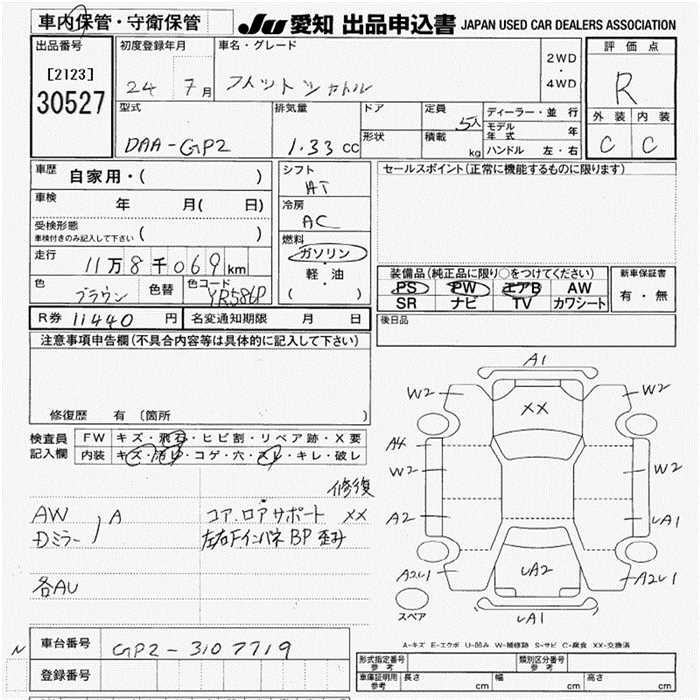 車内保管・守衛保管
JU 愛知 出品申込書 JAPAN USED CAR DEALERS ASSOCIATION
出品番号 初度登録年月 車名・グレード 評価点
[2123] 30527
24 7月 フィットシャトル 2WD・4WD R
型式 排気量 ドア 定員 ディーラー・並行 外装 内装
DAA-GP2 1.33 cc 形状 積載 5人 kg モデル年式 年 C C
ハンドル 左・右
車歴 自家用・( )
シフト AT
セールスポイント(正常に機能するものに限ります)
車検 年 月( 日)
冷房 AC
受検形態 車検付きのみ記入して下さい ( )
燃料 ガソリン・軽・油 ( )
走行 11万8千069km
装備品(純正品に限り○をつけてください) 新車保証書
PS PW エアB AW 有・無
SR ナビ TV カワシート
色 ブラウン 色替 色コード YR586P
R券 11440円 名変通知期限 月 日
後日品
注意事項申告欄(不具合内容等は具体的に記入して下さい)
修復歴 有 〔箇所 〕
検査員記入欄 FW キズ・飛石・ヒビ割・リペア跡・X要
内装 キズ・汚レ・コゲ・穴・スレ・キレ・破レ
修復
AW A コア.ロアサポート XX
Dミラー 左右Fインパネ BP 歪み
各AU
A1
W2 W2
XX
A4
W2 W2
A2 UA1
A2U1 UA2 A2U1
スペア UA1
A-キズ E-エクボ U-凹み W-補修跡 S-サビ C-腐食 XX-交換済
N
車台番号 GP2-3107719
登録番号
形式指定番号 参考 類別区分番号 参考
車庫証明用 参考 長さ cm 幅 cm 高さ cm